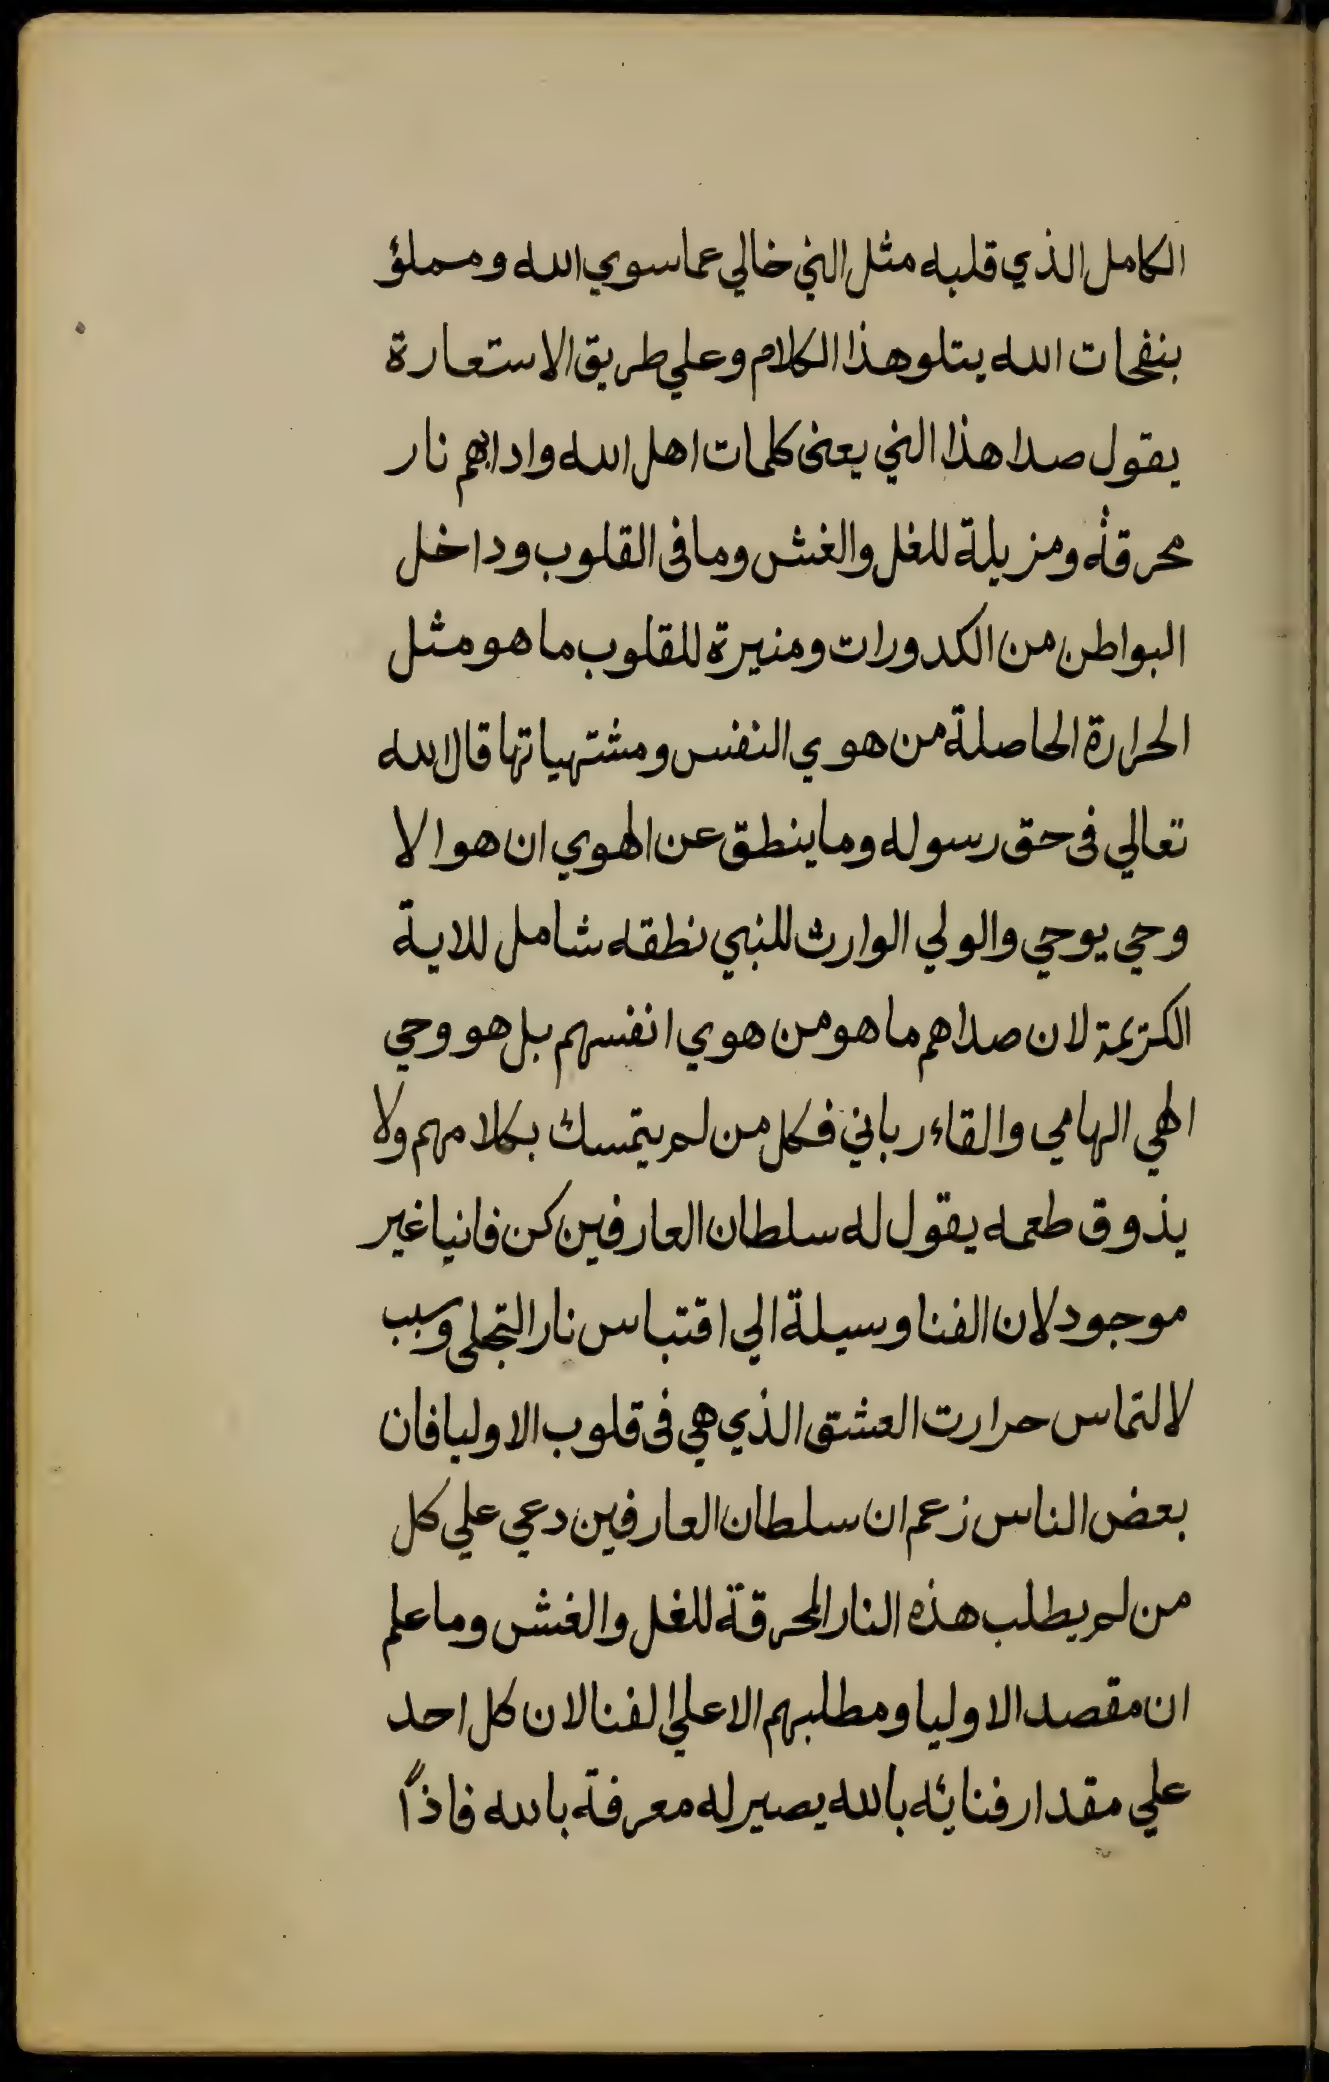 الكامل الذي قلبه مثل الني خالي عما سوي الله ومملؤ
بنفحات الله يتلو هذا الكلام وعلي طريق الاستعارة
يقول صدا هذا الني يعنى كلمات اهل الله وادابهم نار
محرقة ومزيلة للغل والغش وما فى القلوب وداخل
البواطن من الكدورات ومنيرة للقلوب ما هو مثل
الحرارة الحاصلة من هوي النفس ومشتهياتها قال الله
تعالي فى حق رسوله وما ينطق عن الهوي ان هو الا
وحي يوحي والولي الوارث للنبي نطقه شامل للاية
الكريمة لان صداهم ما هو من هوي انفسهم بل هو وحي
الهي الهامي والقاء رباني فكل من لم يتمسك بكلامهم ولا
يذوق طعمه يقول له سلطان العارفين كن فانيا غير
موجود لان الفنا وسيلة الي اقتباس نار التجلى وسبب
لالتماس حرارت العشق الذي هي فى قلوب الاوليا فان
بعض الناس زعم ان سلطان العارفين دعي علي كل
من لم يطلب هذه النار المحرقة للغل والغش وما علم
ان مقصد الاوليا ومطلبهم الاعلي الفنا لان كل احد
علي مقدار فنائه بالله يصير له معرفة بالله فاذًا